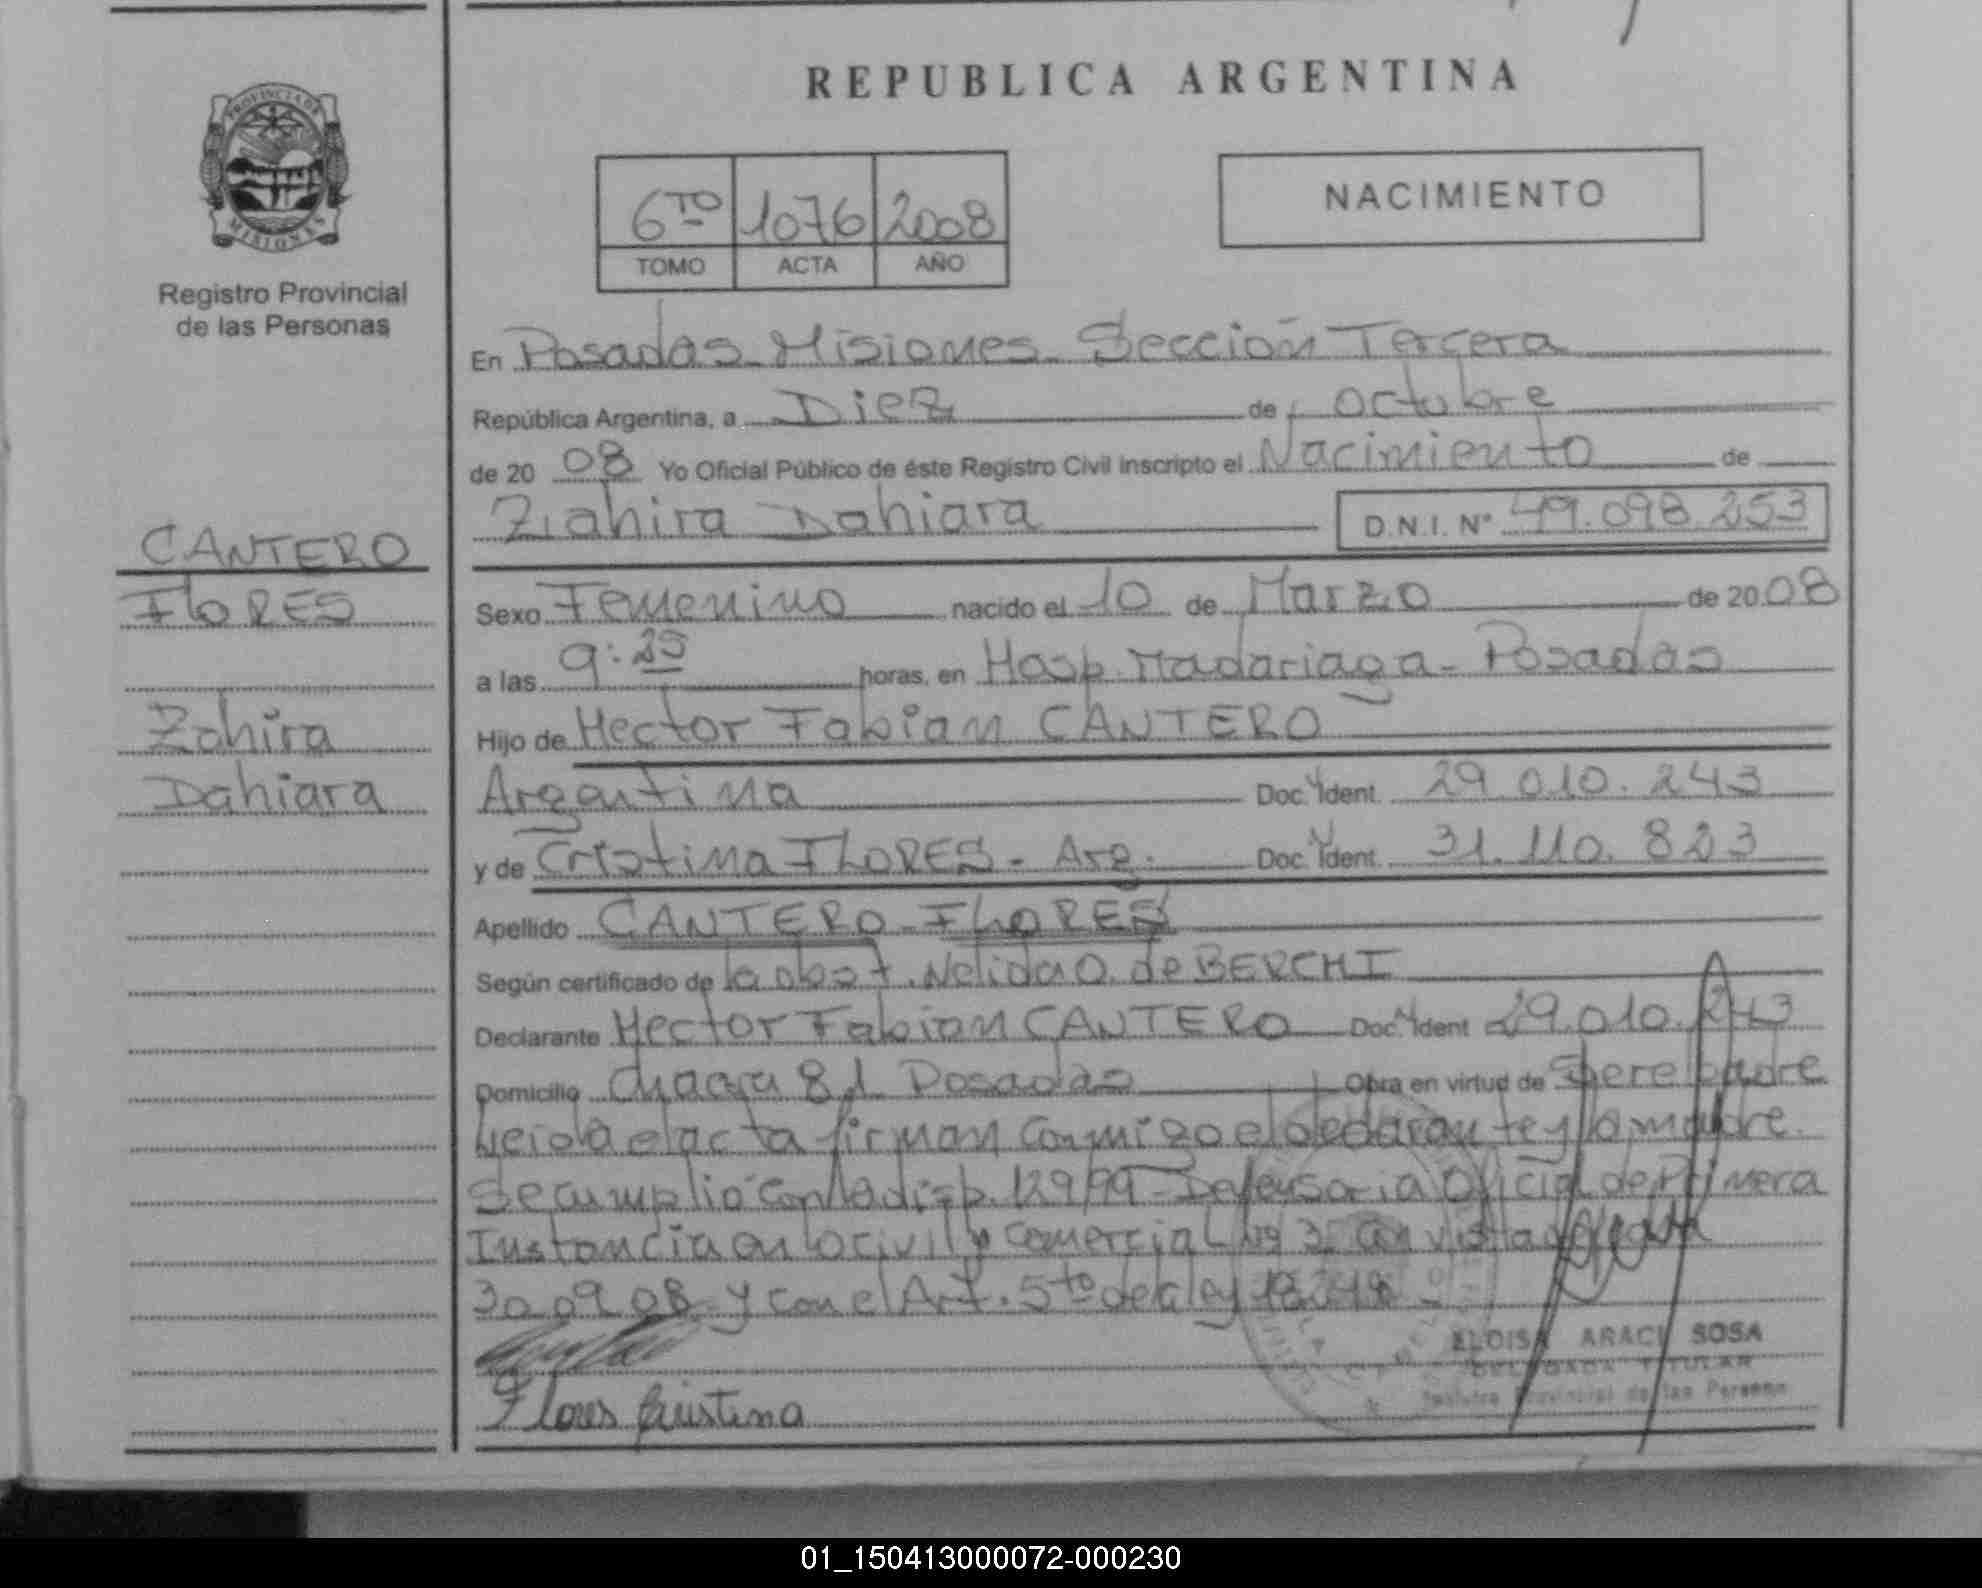 REPUBLICA ARGENTINA
PROVINCIA DE
MISIONES
Registro Provincial
de las Personas
6TO 1076 2008
TOMO ACTA AÑO
NACIMIENTO
CANTERO
FLORES
Zahira
Dahiara
En Posadas Misiones Sección Tercera
República Argentina, a Diez de octubre
de 2008 Yo Oficial Público de éste Registro Civil Inscripto el Nacimiento de
Zahira Dahiara D.N.I. Nº 49.098.253
Sexo Femenino nacido el 10 de Marzo de 2008
a las 9:25 horas, en Hosp. Madariaga - Posadas
Hijo de Hector Fabian CANTERO
Argentina Doc. Ident. 29.010.243
y de Cristina FLORES - Arg. Doc. Ident. 31.110.823
Apellido CANTERO - FLORES
Según certificado de la obst. Nelida O. de BERCHI
Declarante Hector Fabian CANTERO Doc. Ident 29.010.243
Domicilio Chacra 81 Posadas Obra en virtud de Ser el padre
Leida el acta firman conmigo el declarante y la madre.
Se cumplio con la disp. 129/99 - Defensoria Oficial de Primera
Instancia en lo civil y comercial Nº 3 con vista de fecha
30.09.08 y con el Art. 5to de la ley 18.248
Flores Cristina
ELOISA ARACI SOSA
DELEGADA TITULAR
Registro Provincial de las Personas
01_150413000072-000230